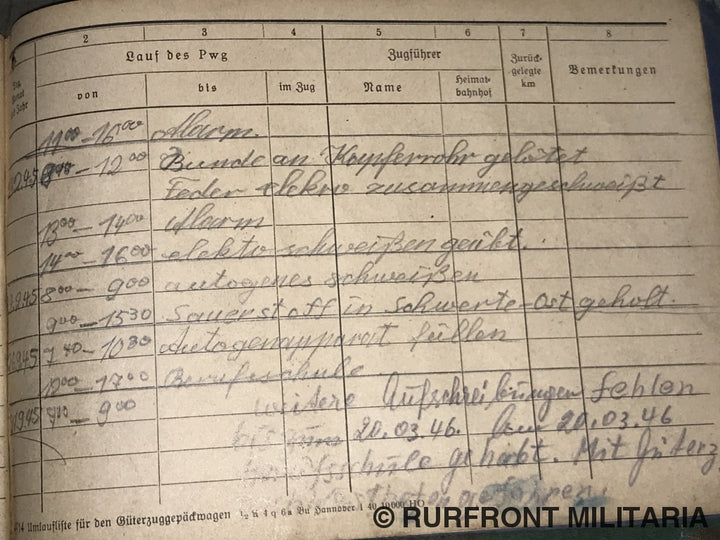 2 3 4 5 6 7 8
Lauf des Pwg Zugführer Zurück- gelegte km Bemerkungen
von bis im Zug Name Heimat- bahnhof
11⁰⁰ – 16⁰⁰ Alarm.
2.45 – 12⁰⁰ Bunde an Kupferrohr gelötet
Feder elektro zusammengeschweißt
13⁰⁰ – 14⁰⁰ Alarm
14⁰⁰ – 16⁰⁰ elekto schweißen geübt.
.2.45 8⁰⁰ – 9⁰⁰ autogenes schweißen
9⁰⁰ – 15³⁰ Sauerstoff in Schwerte-Ost geholt.
.45 7⁴⁰ – 10³⁰ Autogenapparat füllen
– 17⁰⁰ Berufsschule
.45 – 9⁰⁰ weitere Aufschreibungen fehlen
bis zum 20.03.46. Am 20.03.46
Berufsschule gehabt. Mit Güterz
gefahren.
Umlaufliste für den Güterzuggepäckwagen ½ K 4 q 6a Bu Hannover 1 40 10000 HO
© RURFRONT MILITARIA